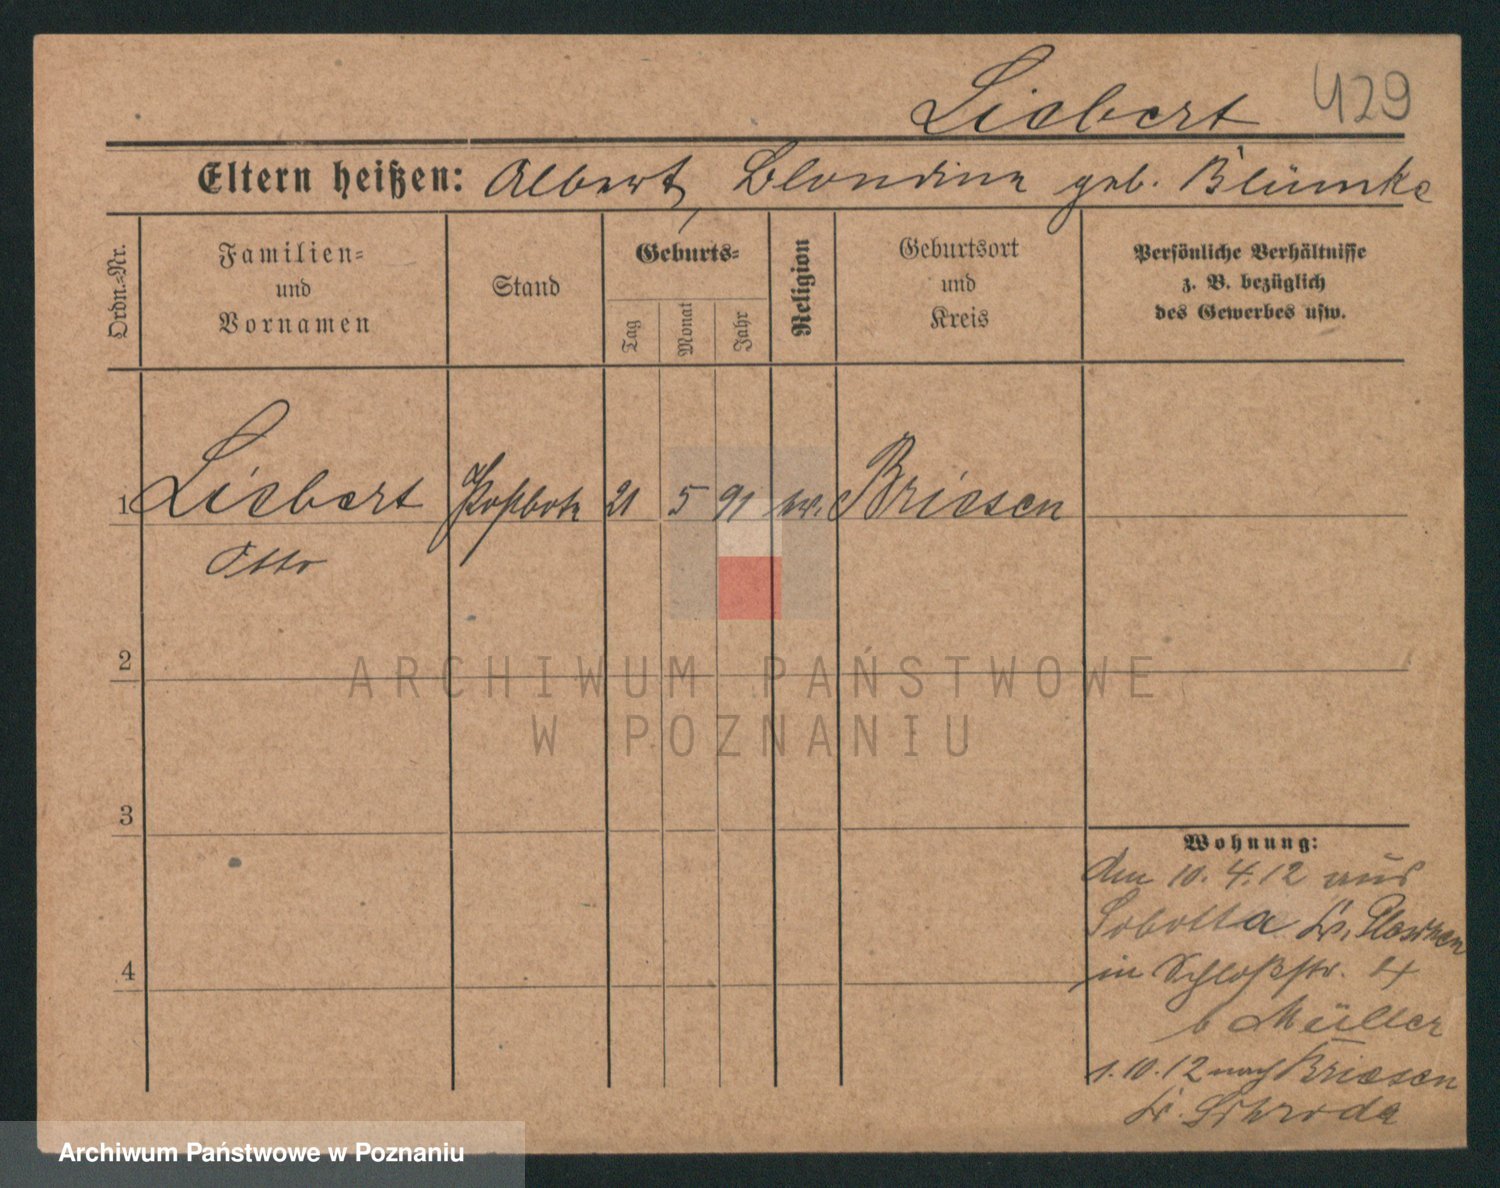 Liebert 429
Eltern heißen: Albert, Blondine geb. Blümke
Ordn.-Nr.
Familien-
und
Vornamen
Stand
Geburts-
Tag
Monat
Jahr
Religion
Geburtsort
und
Kreis
Persönliche Verhältnisse
z. B. bezüglich
des Gewerbes usw.
1 Liebert Postbote 21 5 91 ev. Briesen
Otto
2
3
4
Wohnung:
den 10.4.12 aus
Sobotta Kr. Pleschen
in Schloßstr. 4
b Müller
1.10.12 nach Briesen
Kr. Schroda
ARCHIWUM PAŃSTWOWE
W POZNANIU
Archiwum Państwowe w Poznaniu